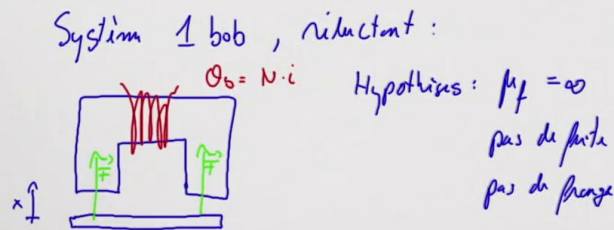 Système 1 bob, réluctant :
Θb = N·i
Hypothèses : μf = ∞
pas de fuite
pas de frange
F F
x